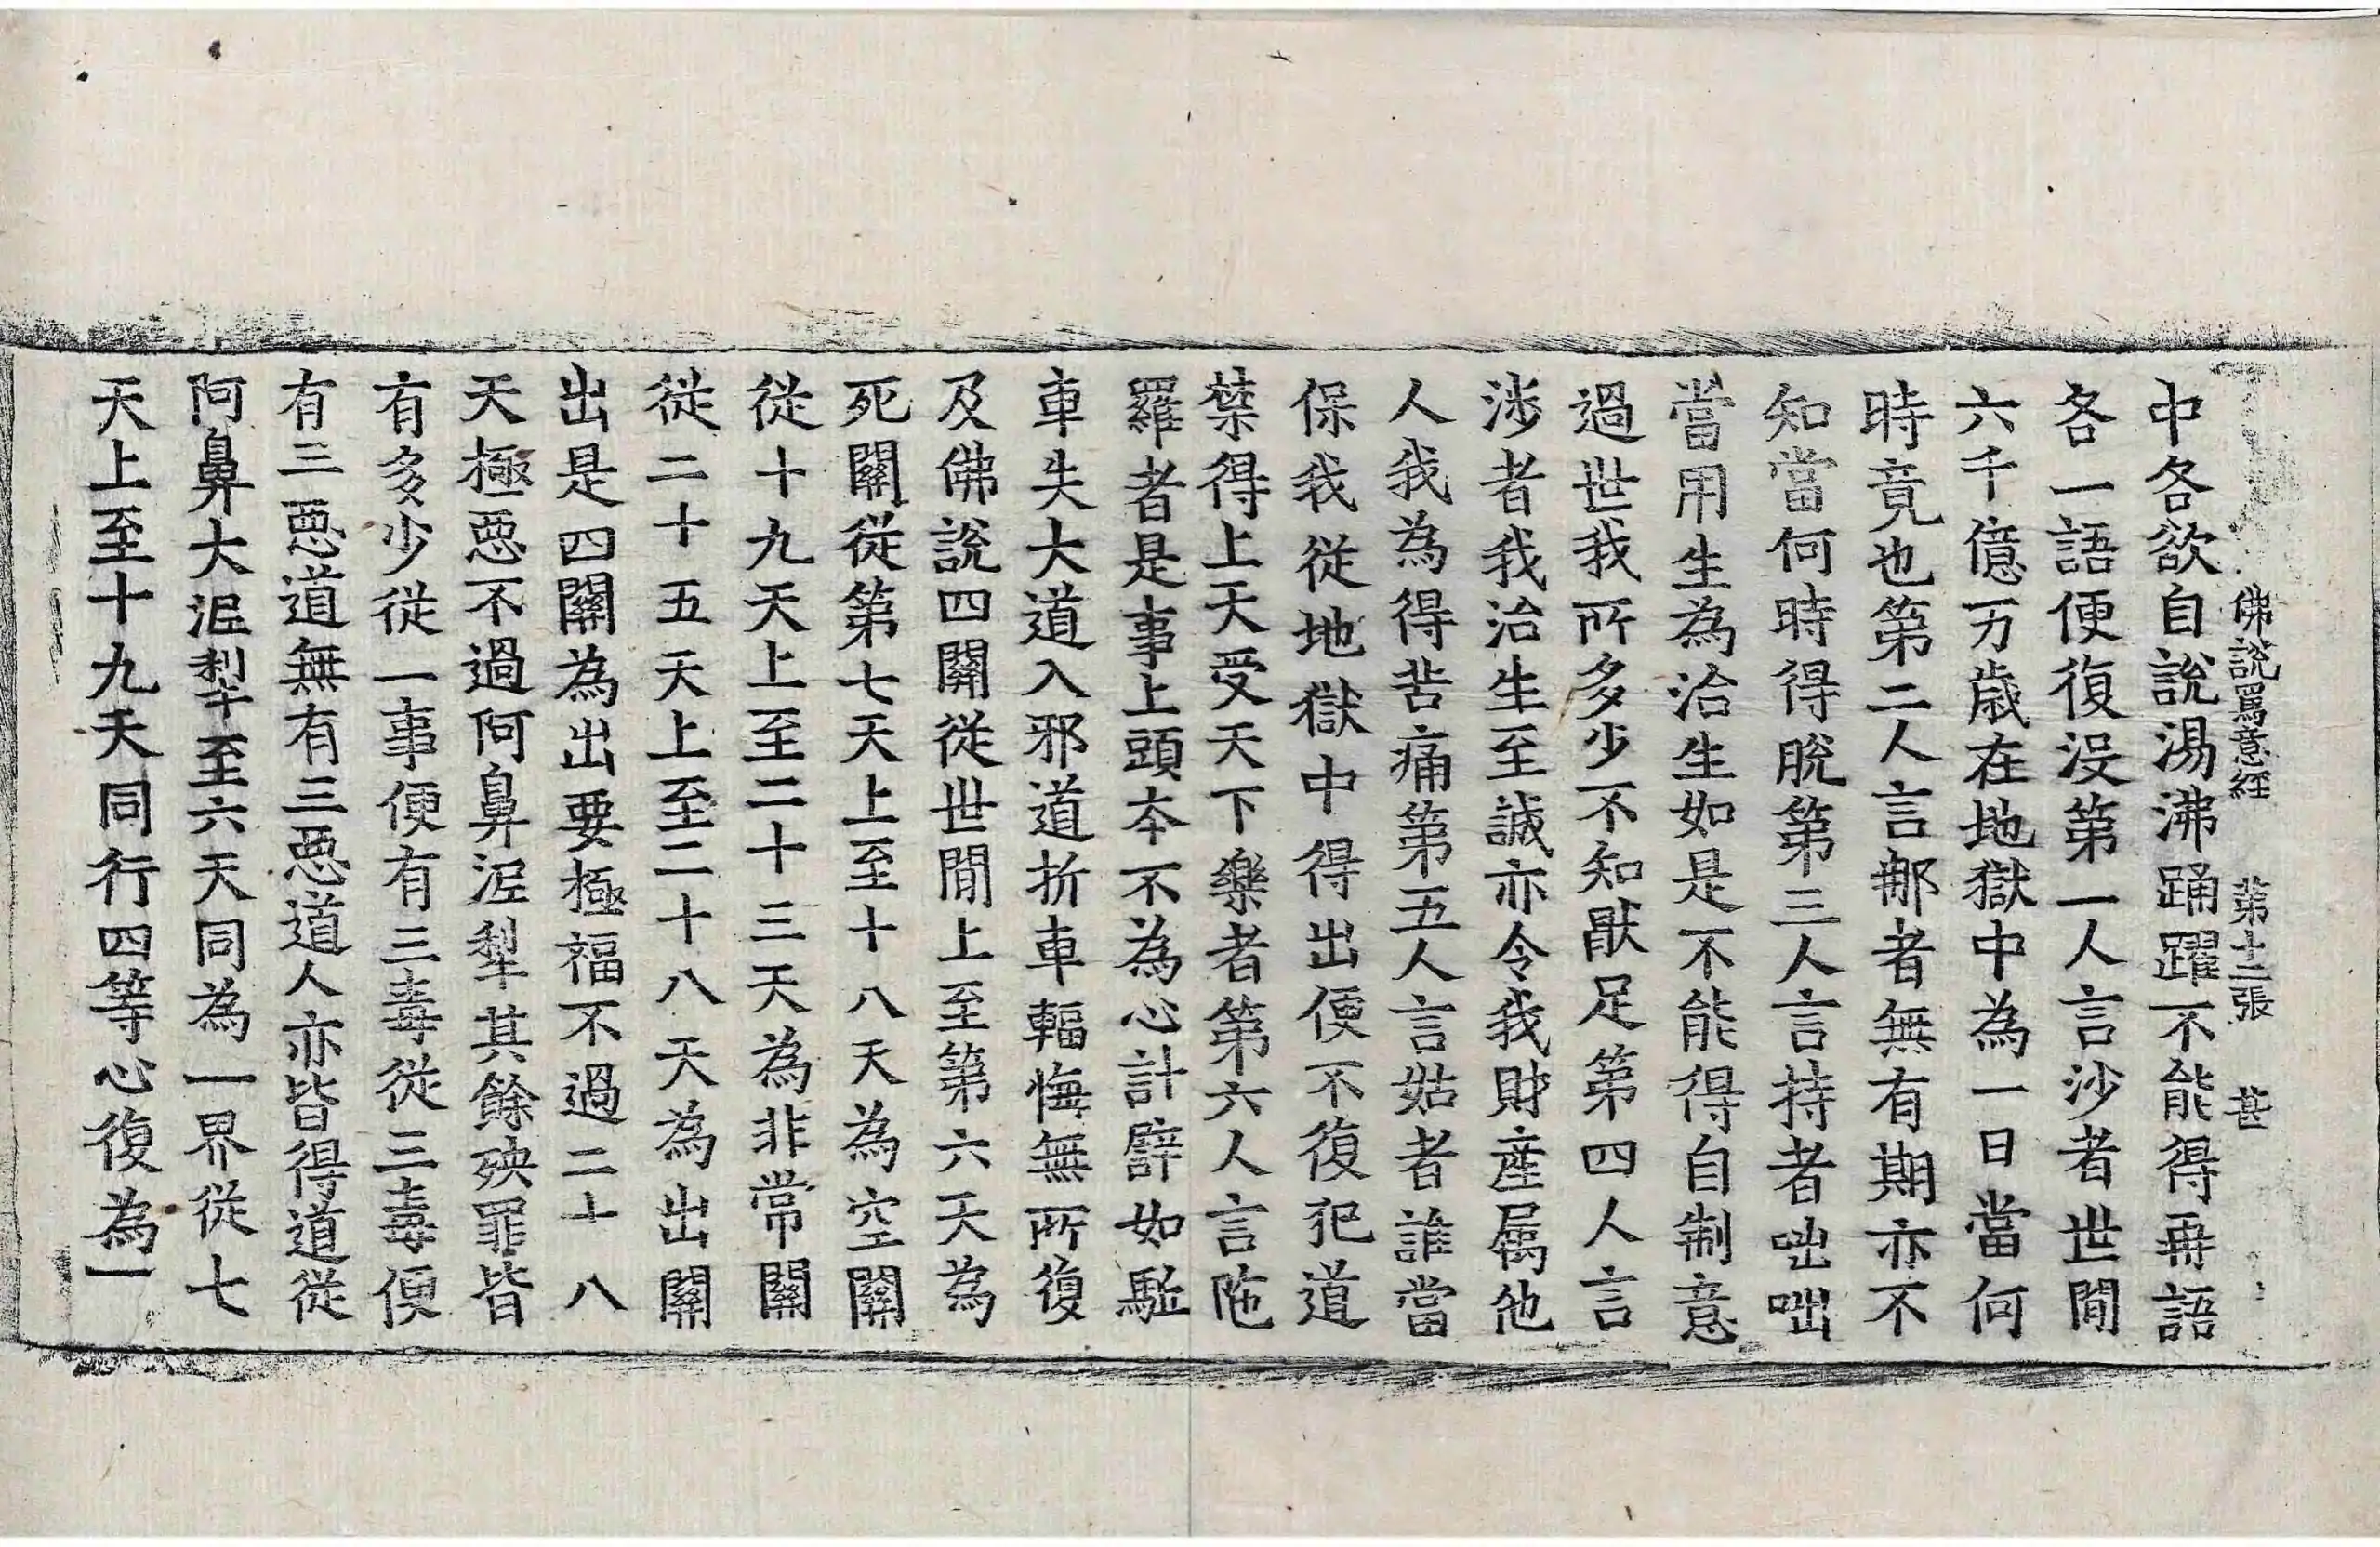 佛說罵意經 第十二張 甚
中各欲自說湯沸踊躍不能得再語
各一語便復沒第一人言沙者世閒
六千億万歲在地獄中為一日當何
時竟也第二人言郍者無有期亦不
知當何時得脫第三人言持者咄咄
當用生為治生如是不能得自制意
過世我所多少不知猒足第四人言
涉者我治生至誠亦令我財產属他
人我為得苦痛第五人言姑者誰當
保我從地獄中得出便不復犯道
禁得上天受天下樂者第六人言陁
羅者是事上頭夲不為心計辟如駈
車失大道入邪道折車輻悔無所復
及佛說四關從世閒上至第六天為
死關從第七天上至十八天為空關
從十九天上至二十三天為非常關
從二十五天上至二十八天為出關
出是四關為出要極福不過二十八
天極惡不過阿鼻泥犁其餘殃罪皆
有多少從一事便有三毒從三毒便
有三惡道無有三惡道人亦皆得道從
阿鼻大泥犁至六天同為一界從七
天上至十九天同行四等心復為一